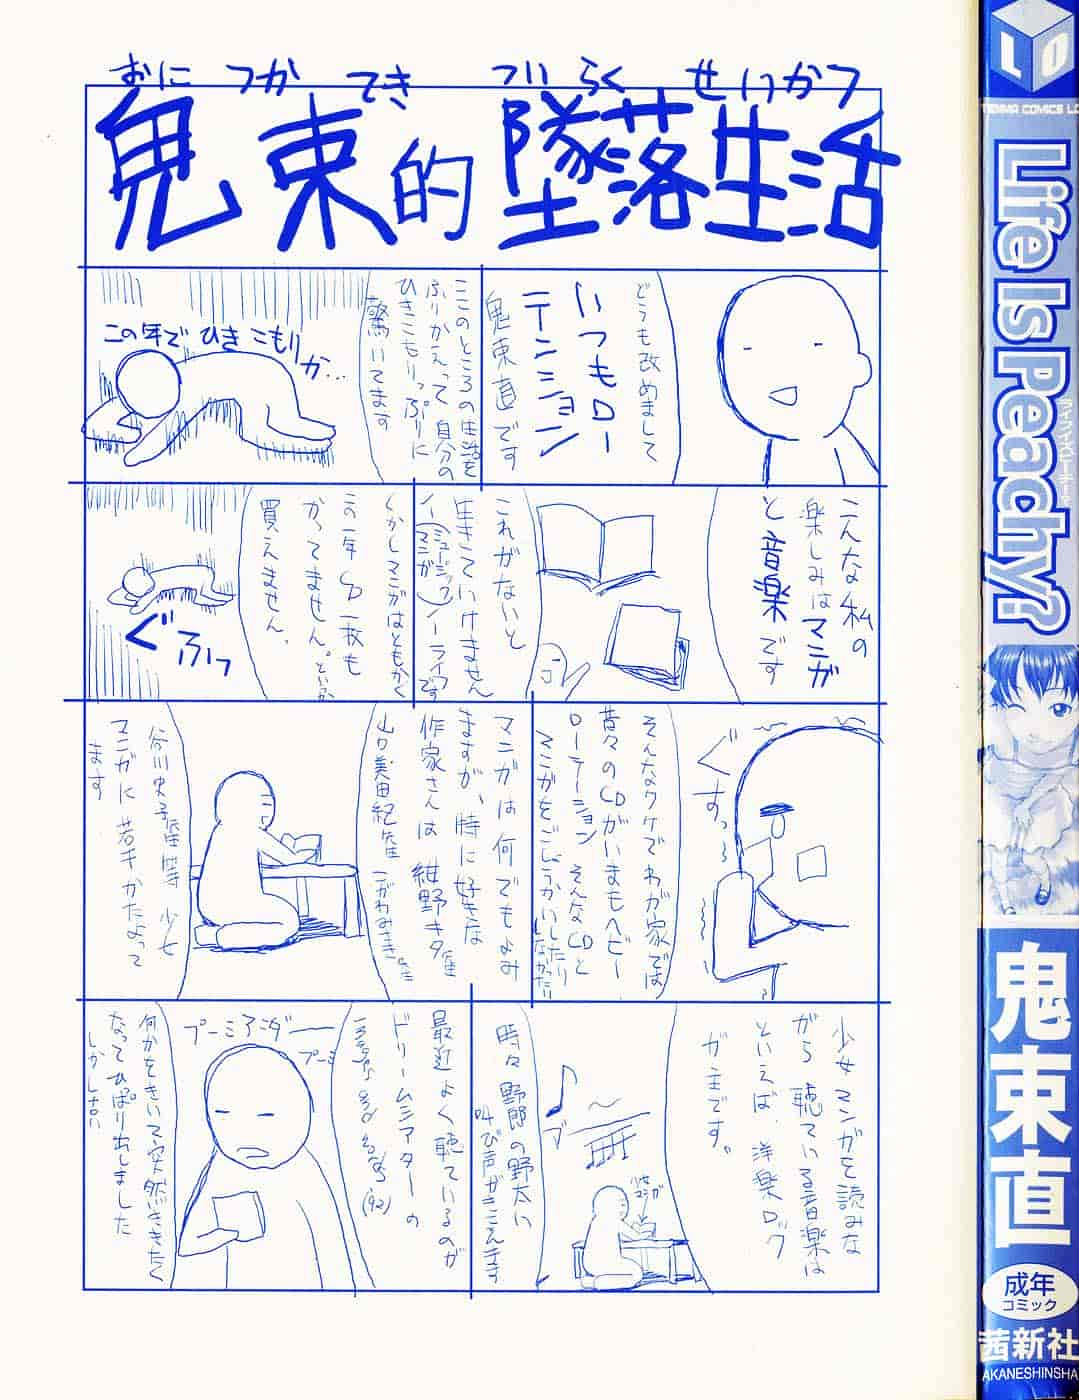 おにつかてきついらくせいかつ
鬼束的墜落生活
どうも改めまして
いつもロー
テーション
鬼束直です
ここのところの生活を
ふりかえって自分の
ひきこもりっぷりに
驚いてます
この年でひきこもりか…
こんな私の
楽しみはマンガ
と音楽です
これがないと
生きていけません
ノー(ミュージック
マンガ)ノーライフです
しかしマンガはともかく
この一年CD一枚も
かってません。というか
買えません。
ぐふっ
そんなワケでわが家では
昔々のCDがいまもヘビー
ローテーション そんなCDと
マンガをごしょうかいしたり
しなかったり
ぐすっ
マンガは何でもよみ
ますが、特に好きな
作家さんは 紺野キタ
山口美由紀 こがわみさき
谷川史子 等 少女
マンガに 若干かたよって
ます
少女マンガを読みな
がら 聴いている音楽は
といえば、洋楽ロック
が主です。
少女マンガ
時々 野郎の野太い
叫び声がきこえます
最近よく聴いているのが
ドリームシアターの
('92)
プーミアンダー
プーミ
何かをきいて突然ききたく
なってひっぱり出しました
しかしさむい
LO
TENMA COMICS LO
Life Is Peachy?
ライフイズピーチィ?
鬼束直
成年
コミック
茜新社
AKANESHINSHA